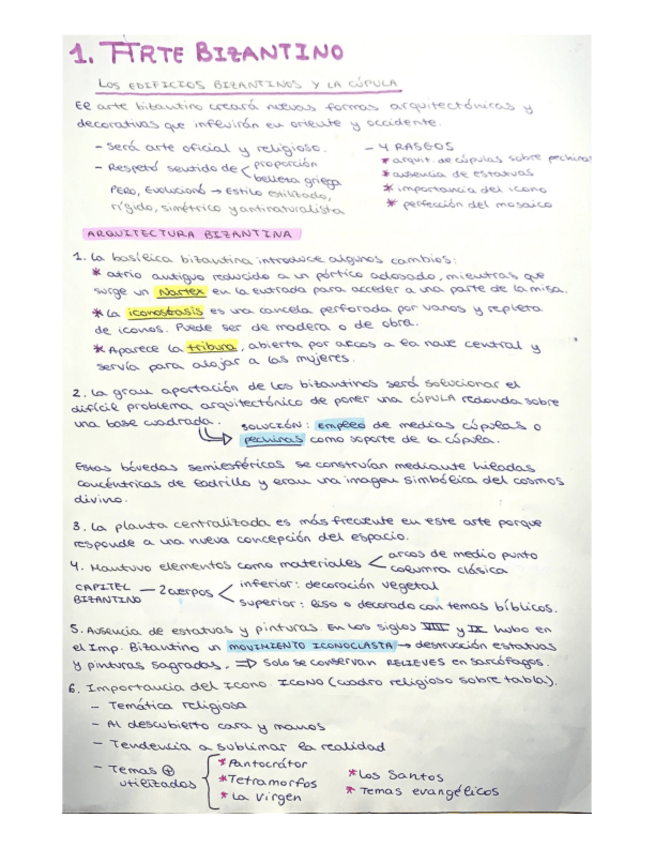 1. ARTE BIZANTINO
LOS EDIFICIOS BIZANTINOS Y LA CÚPULA
El arte bizantino creará nuevas formas arquitectónicas y
decorativas que influirán en oriente y occidente.
- Será arte oficial y religioso.
- Respetó sentido de < proporción
belleza griega
PERO, Evolucionó → Estilo estilizado,
rígido, simétrico y antinaturalista
- 4 RASGOS
* arquit. de cúpulas sobre pechinas
* ausencia de estatuas
* importancia del icono
* perfección del mosaico
ARQUITECTURA BIZANTINA
1. La basílica bizantina introduce algunos cambios:
* atrio antiguo reducido a un pórtico adosado, mientras que
surge un Nartex en la entrada para acceder a una parte de la misa.
* La iconostasis es una cancela perforada por vanos y repleta
de iconos. Puede ser de madera o de obra.
* Aparece la tribuna, abierta por arcos a la nave central y
servía para alojar a las mujeres.
2. La gran aportación de los bizantinos será solucionar el
difícil problema arquitectónico de poner una CÚPULA redonda sobre
una base cuadrada.
SOLUCIÓN: empleo de medias cúpulas o
pechinas como soporte de la cúpula.
Estas bóvedas semiesféricas se construían mediante hiladas
concéntricas de ladrillo y eran una imagen simbólica del cosmos
divino.
3. La planta centralizada es más frecuente en este arte porque
responde a una nueva concepción del espacio.
4. Mantuvo elementos como materiales < arcos de medio punto
columna clásica
CAPITEL BIZANTINO — 2 cuerpos < inferior: decoración vegetal
superior: liso o decorado con temas bíblicos.
5. Ausencia de estatuas y pinturas. En los siglos VIII y IX hubo en
el Imp. Bizantino un MOVIMIENTO ICONOCLASTA → destrucción estatuas
y pinturas sagradas. ⇒ Solo se conservan RELIEVES en sarcófagos.
6. Importancia del Icono. ICONO (cuadro religioso sobre tabla).
- Temática religiosa
- Al descubierto cara y manos
- Tendencia a sublimar la realidad
- Temas ⊕
utilizados
* Pantocrátor
* Tetramorfos
* La Virgen
* Los Santos
* Temas evangélicos